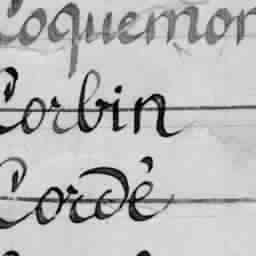 Coquemor
Corbin
Cordé